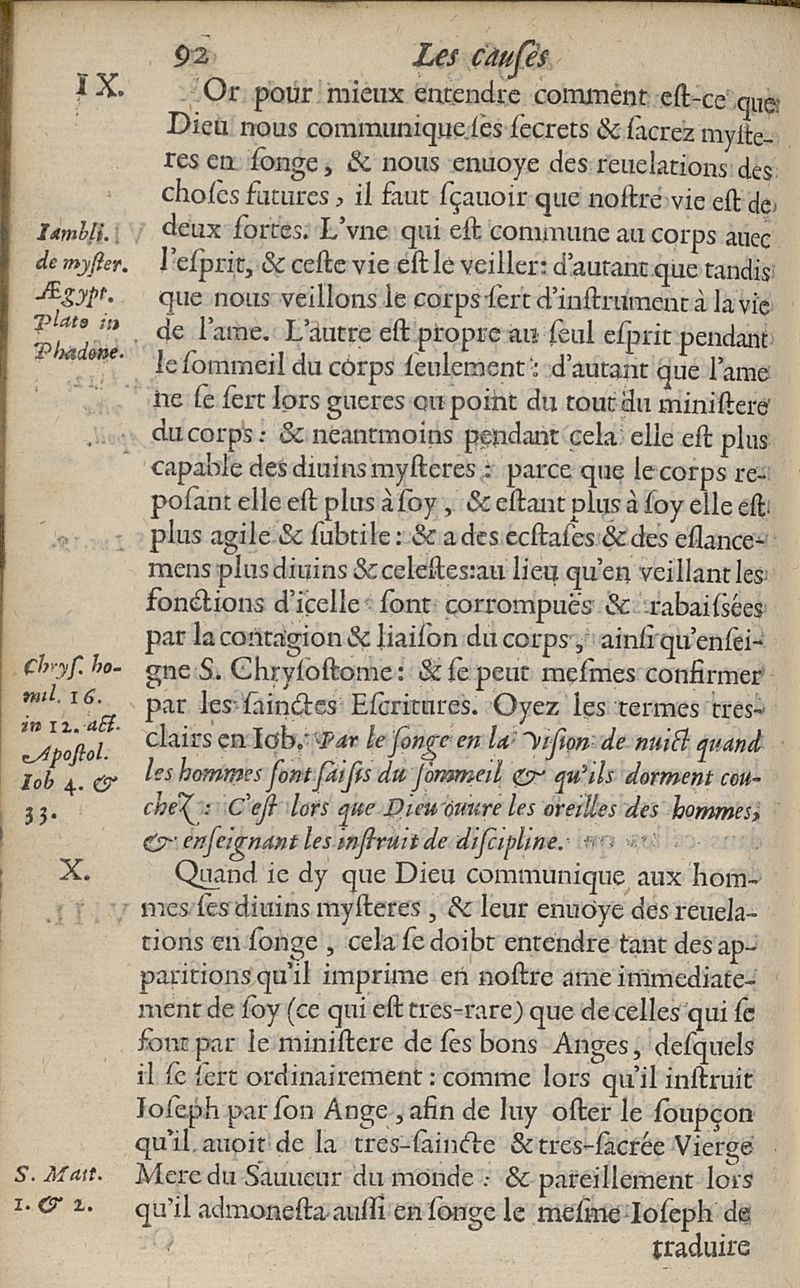 92 Les cauſes
IX.
Or pour mieux entendre comment eſt-ce que
Dieu nous communique ſes ſecrets & ſacrez myſte-
res en ſonge, & nous enuoye des reuelations des
choſes futures, il faut ſçauoir que noſtre vie eſt de
deux ſortes. L'vne qui eſt commune au corps auec
l'eſprit, & ceſte vie eſt le veiller: d'autant que tandis
que nous veillons le corps ſert d'inſtrument à la vie
de l'ame. L'autre eſt propre au ſeul eſprit pendant
le ſommeil du corps ſeulement: d'autant que l'ame
ne ſe ſert lors gueres ou point du tout du miniſtere
du corps: & neantmoins pendant cela elle eſt plus
capable des diuins myſteres: parce que le corps re-
poſant elle eſt plus à ſoy, & eſtant plus à ſoy elle eſt
plus agile & ſubtile: & a des ecſtaſes & des eſlance-
mens plus diuins & celeſtes: au lieu qu'en veillant les
fonctions d'icelle ſont corrompuës & rabaiſsées
par la contagion & liaiſon du corps, ainſi qu'enſei-
gne S. Chryſoſtome: & ſe peut meſmes confirmer
par les ſainctes Eſcritures. Oyez les termes tres-
clairs en Iob. Par le ſonge en la viſion de nuict quand
les hommes ſont ſaiſis du ſommeil & qu'ils dorment cou-
chez: C'eſt lors que Dieu ouure les oreilles des hommes,
& enſeignant les inſtruit de diſcipline.
Iambli.
de myſter.
Ægypt.
Plato in
Phædone.
Chryſ. ho-
mil. 16.
in 12. act.
Apoſtol.
Iob 4. &
33.
X.
Quand ie dy que Dieu communique aux hom-
mes ſes diuins myſteres, & leur enuoye des reuela-
tions en ſonge, cela ſe doibt entendre tant des ap-
paritions qu'il imprime en noſtre ame immediate-
ment de ſoy (ce qui eſt tres-rare) que de celles qui ſe
font par le miniſtere de ſes bons Anges, deſquels
il ſe ſert ordinairement: comme lors qu'il inſtruit
Ioſeph par ſon Ange, afin de luy oſter le ſoupçon
qu'il auoit de la tres-ſaincte & tres-ſacrée Vierge
Mere du Sauueur du monde: & pareillement lors
qu'il admoneſta auſſi en ſonge le meſme Ioſeph de
S. Matt.
1. & 2.
traduire